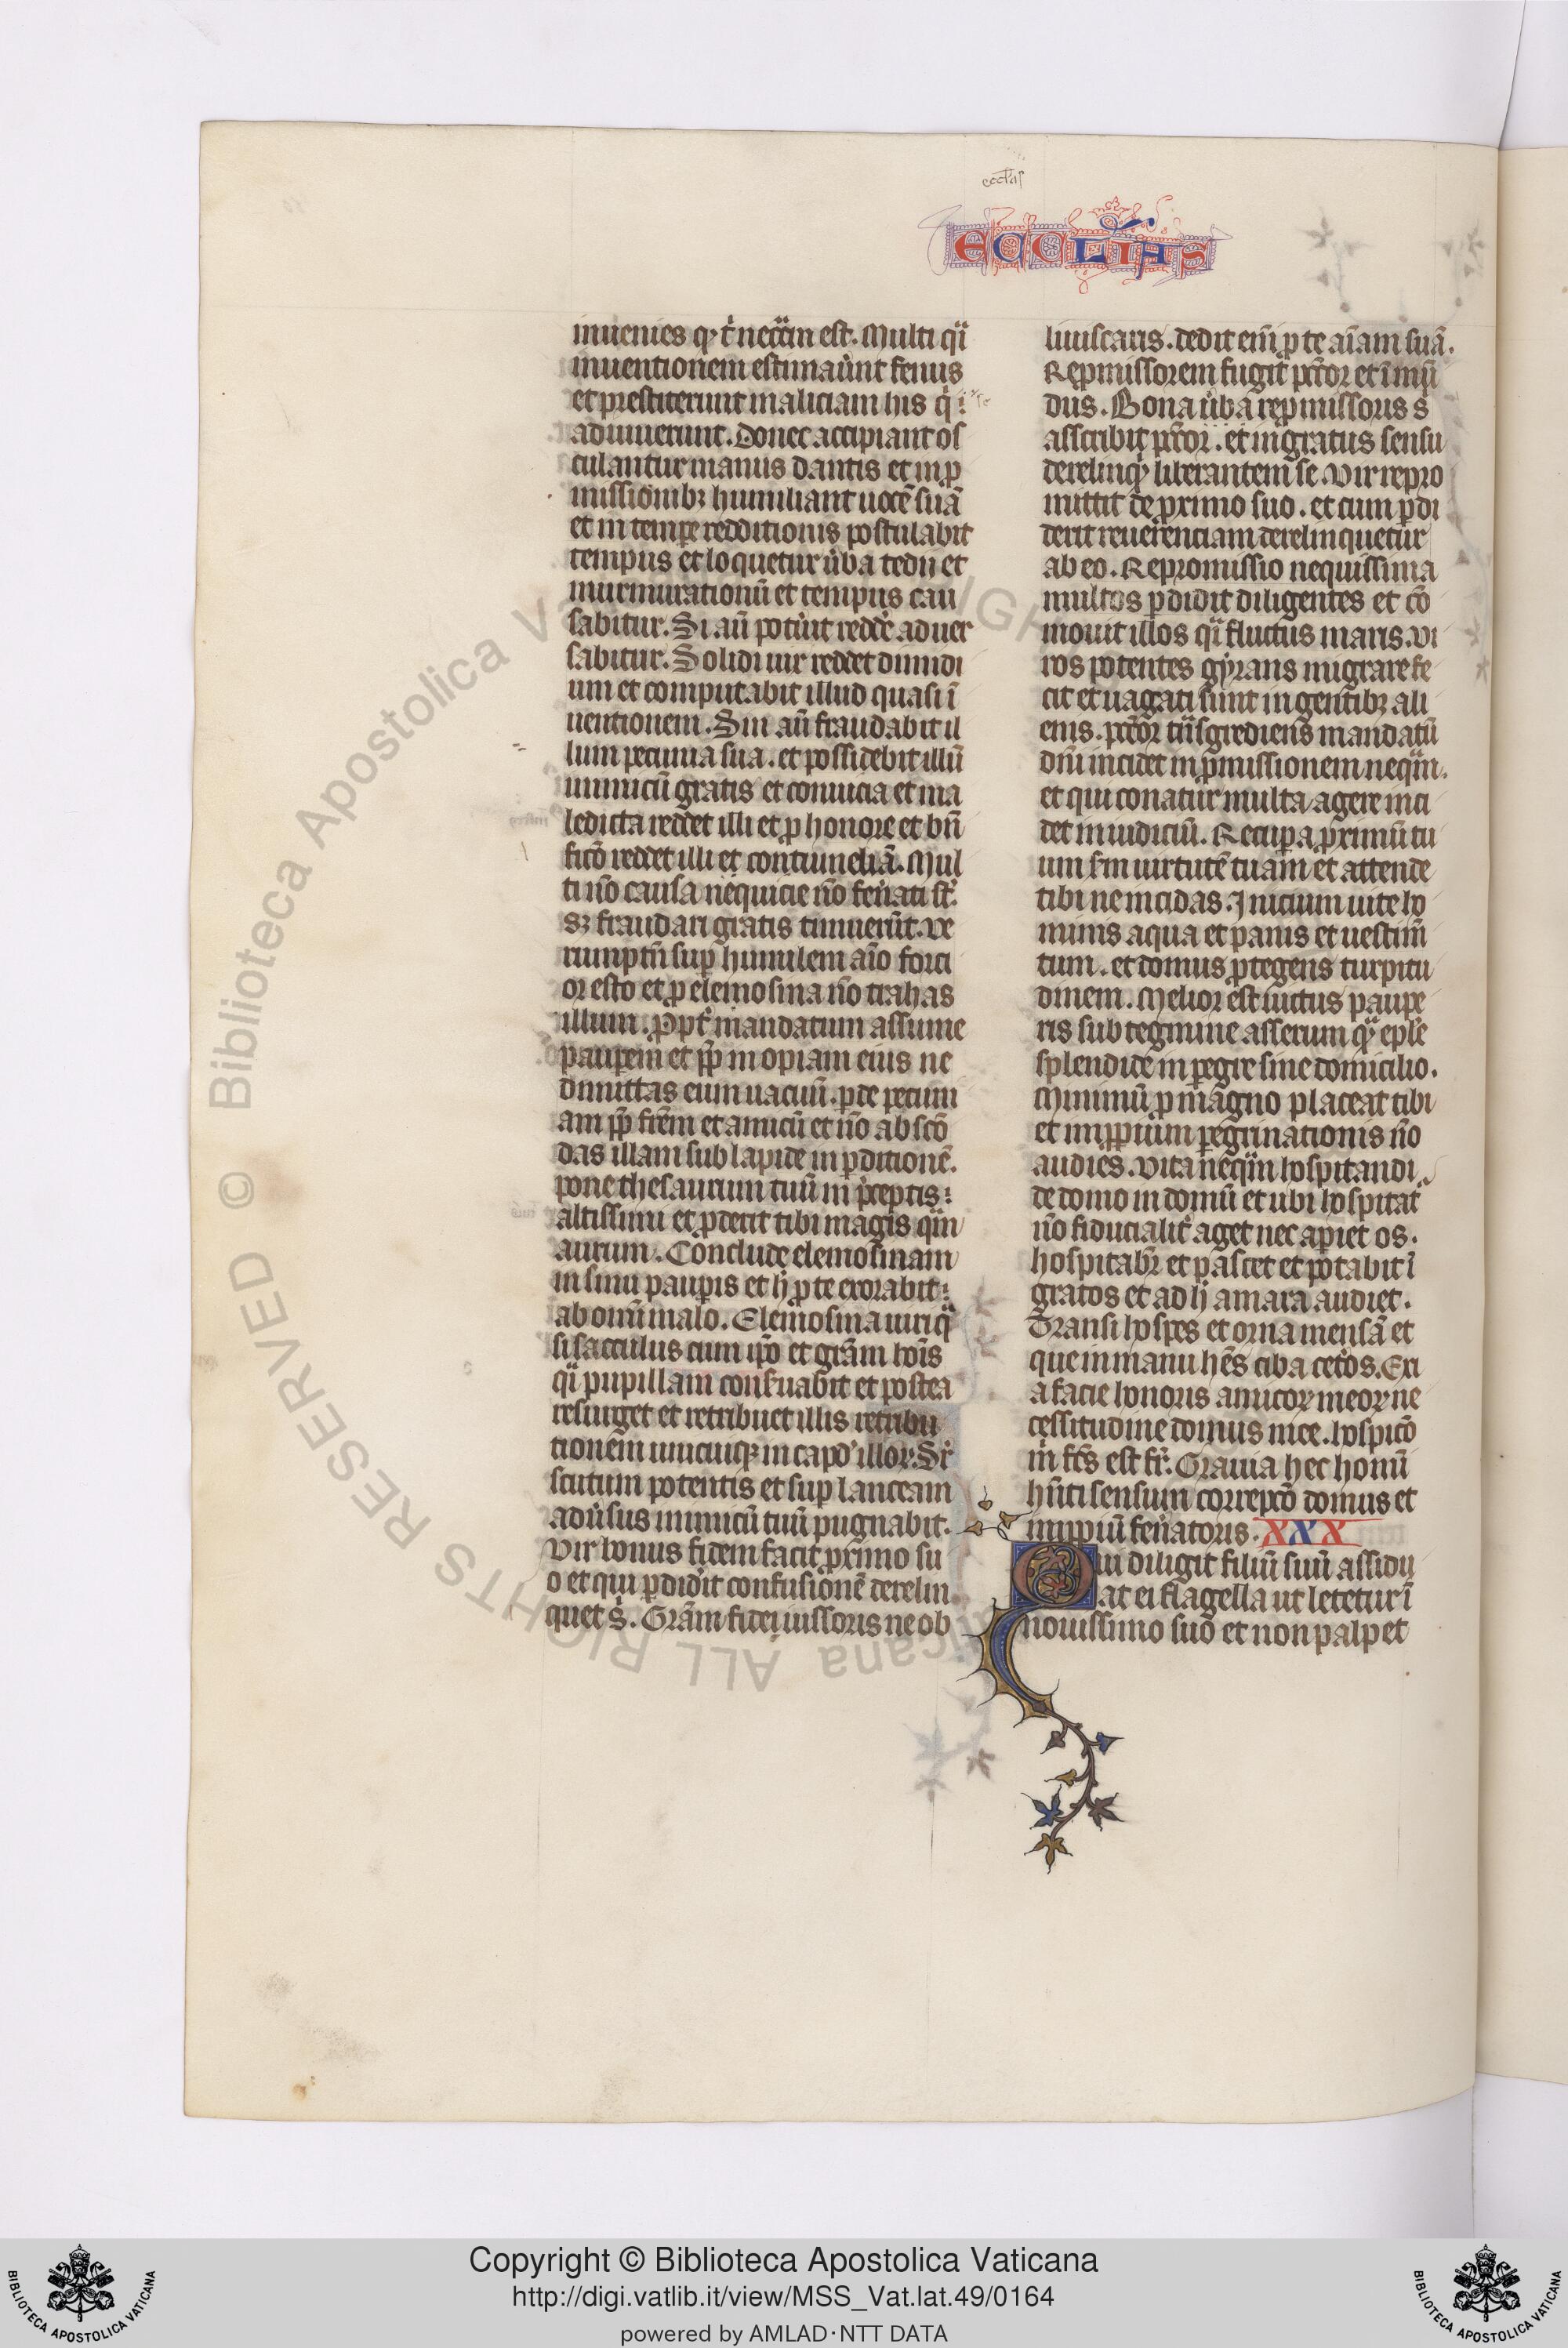 eccl'as
ECCLIAS
inuenies qͥ t̾ necͣꝛin est. Multi qͣi
inuentionem estimauͤnt fenus
et prestiterunt maliciam his qͥ
adiuuerunt. Donec accipiant os
culantur manus dantis et in ꝓ
missionibꝫ humiliant uocē suā
et in tempe redditionis postulabit
tempus et loquetur uͤba tedii et
murmurationū et tempus cau
sabitur. Si aū potuͤit reddeͤ aduer
sabitur. Solidi uix reddet dimidi
um et computabit illud quasi ī
uentionem. Sin aū fraudabit il
lum pecunia sua. et possidebit illū
inimicū gratis et conuicia et ma
ledicta reddet illi et ꝓ honore et bn̄
ficō reddet illi et contumeliā. Mul
ti nō causa nequicie nō fenͤati st̄.
sꝫ fraudari gratis timuerūt. Ve
rumptn̄ suꝑ humilem aīo forci
or esto et ꝓ elemosina nō trahas
illum. Ꝓpt̾ mandatum assume
pauꝑem et ꝓp̄ inopiam eius ne
dimittas eum uacuū. ꝑde pecuni
am ꝓp̄ frēm et amicū et nō abscō
das illam sub lapide in ꝑditionē.
pone thesaurum tuū in p̄ceptis
altissimi et ꝓderit tibi magis qͣm
aurum. Conclude elemosinam
in sinu pauꝑis et h̄ ꝓ te exorabit
ab omni malo. Elemosina uiri qͣ
si sacculus cum ip̄o et grām hoīs
qͣi pupillam conſuabit et postea
resurget et retribuet illis retribu
tionem unicuiqꝫ in capd' illoꝝ. Sr̄
scutum potentis et suꝑ lanceam
aduͤsus inimicū tuū pugnabit.
Vir bonus fidem facit ꝓximo su
o et qui ꝑdidͤit confusionē derelin
quet ṡ. Grām fidei iussoris ne ob
liuiscaris. dedit enī ꝓ te aīam suā.
Reꝓmissorem fugit pctōr et īmū
dus. Bona uͤba reꝓmissoris s̄
asscribit pctōr. et ingratus sensu
derelinqͥ liberantem se. Vir repro
mittit de ꝓximo suo. et cum ꝑdi
derit reuerenciam derelinquetur
ab eo. Repromissio nequissima
multos ꝑdidit diligentes et cō
mouit illos qͣi fluctus maris. Vi
ros potentes gyrans migrare fe
cit et uagati sunt in gentibꝫ ali
enis. pctōr tͣnsgrediens mandatū
dn̄i incidet in ꝓmissionem neqͣm.
et qui conatur multa agere inci
det in iudiciū. Recuꝑa ꝓximū tu
um ſm uirtutē tuam et attende
tibi ne incidas. Inicium uite ho
minis aqua et panis et uestim̄
tum. et domus ꝓtegens turpitu
dinem. Melior est uictus paupe
ris sub tegmine asserum qͣ epl̄e
splendide in ꝑegre sine domicilio.
Minimū ꝓ magno placeat tibi
et imꝓꝑium ꝑegrinationis nō
audies. Vita neqͣm hospitandi
de domo in domū et ubi hospitat̾
nō fiducialit̾ aget nec aperiet os.
hospitabit̾ et pascet et potabit ī
gratos et ad h̄ amara audiet.
Transi hospes et orna mensā et
que in manu hēs ciba cetͤos. Exi
a facie honoris amicoꝝ meoꝝ ne
cessitudine domus mee. hospicō
m̄ fc̄s est fr̄. Grauia hec homī
hn̄ti sensum correpcō domus et
imꝓꝑiū fenͤatoris. XXX
Qui diligit filiū suū assidu
at ei flagella ut letetur ī
nouissimo suo et non palpet
© Biblioteca Apostolica Vaticana ALL RIGHTS RESERVED
Copyright © Biblioteca Apostolica Vaticana
http://digi.vatlib.it/view/MSS_Vat.lat.49/0164
powered by AMLAD·NTT DATA
BIBLIOTECA APOSTOLICA VATICANA
BIBLIOTECA APOSTOLICA VATICANA